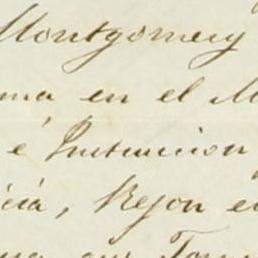 Montgomery
ma en el M
é Instruccion
icia, Rejon e